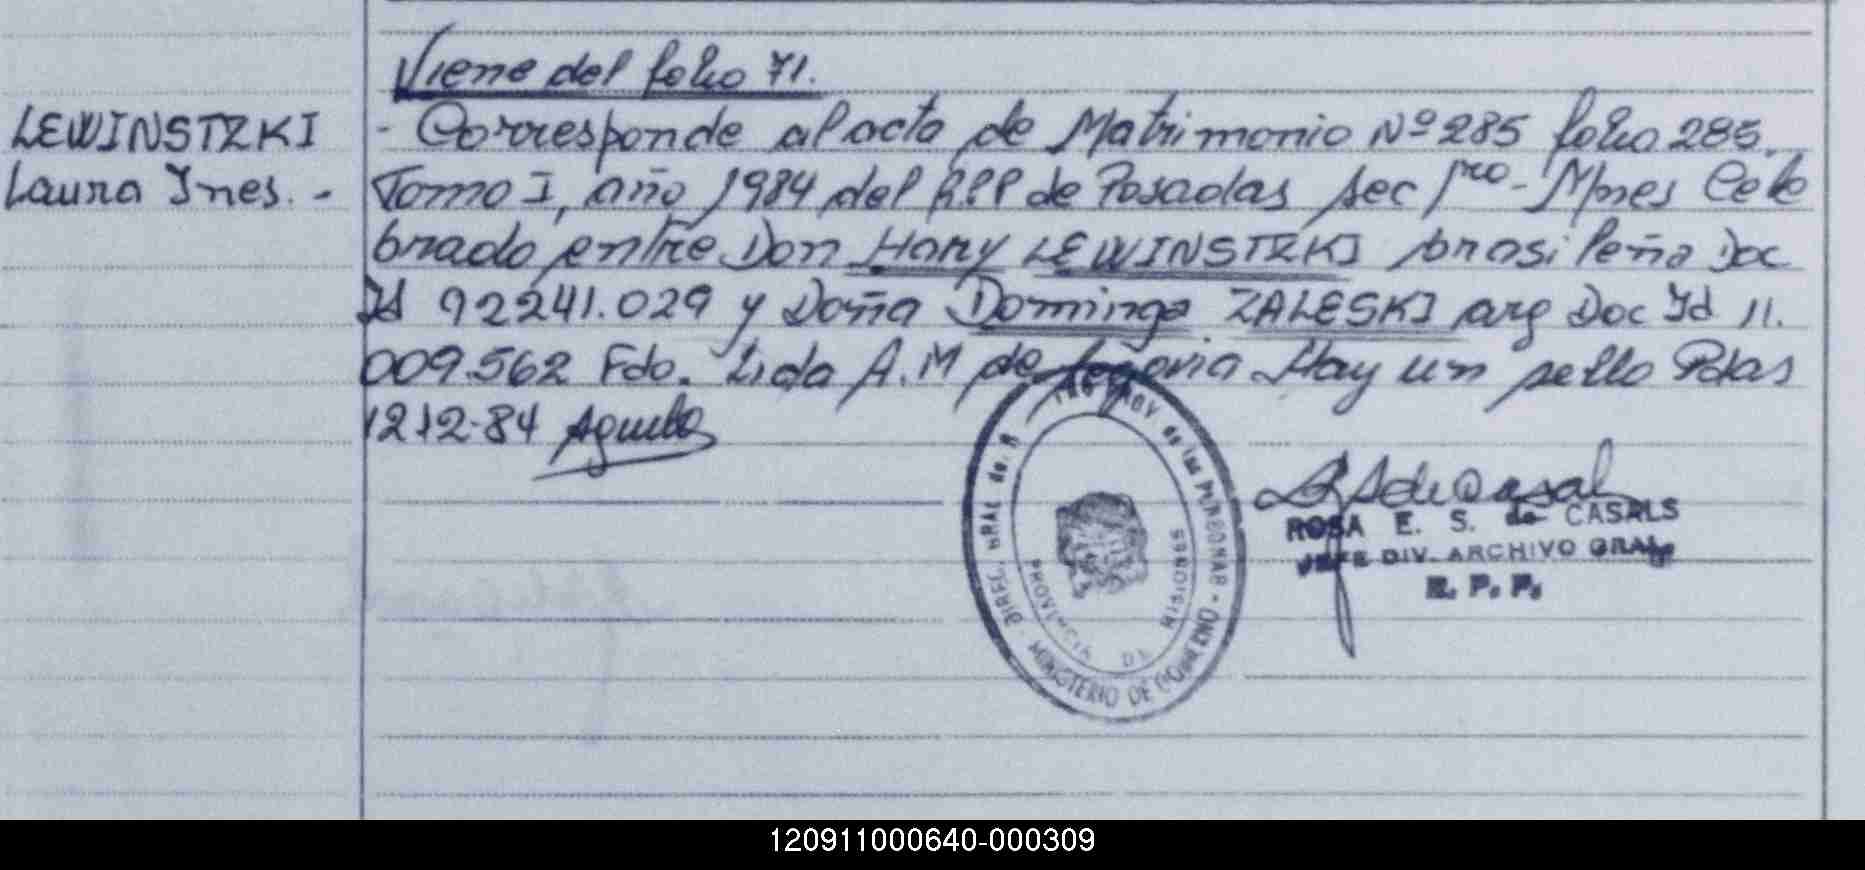 Viene del folio 71.
LEWINSTZKI
Laura Ines. -
- Corresponde al acta de Matrimonio Nº 285 folio 285.
Tomo I, año 1984 del R.P.P de Posadas sec 1ra - Mnes Cele
brado entre Don Hary LEWINSTZKI brasileña Doc
Id 92241.029 y Doña Dominga ZALESKI arg Doc Id 11.
009.562 Fdo. Lida A.M de Segovia Hay un sello Pdas
12-12-84
DIREC. GRAL de. R PROV. de las PERSONAS -
MINISTERIO DE GOBIERNO
PROVINCIA DE MISIONES
ROSA E. S. de CASALS
JEFE DIV. ARCHIVO GRAL
R. P. P.
120911000640-000309